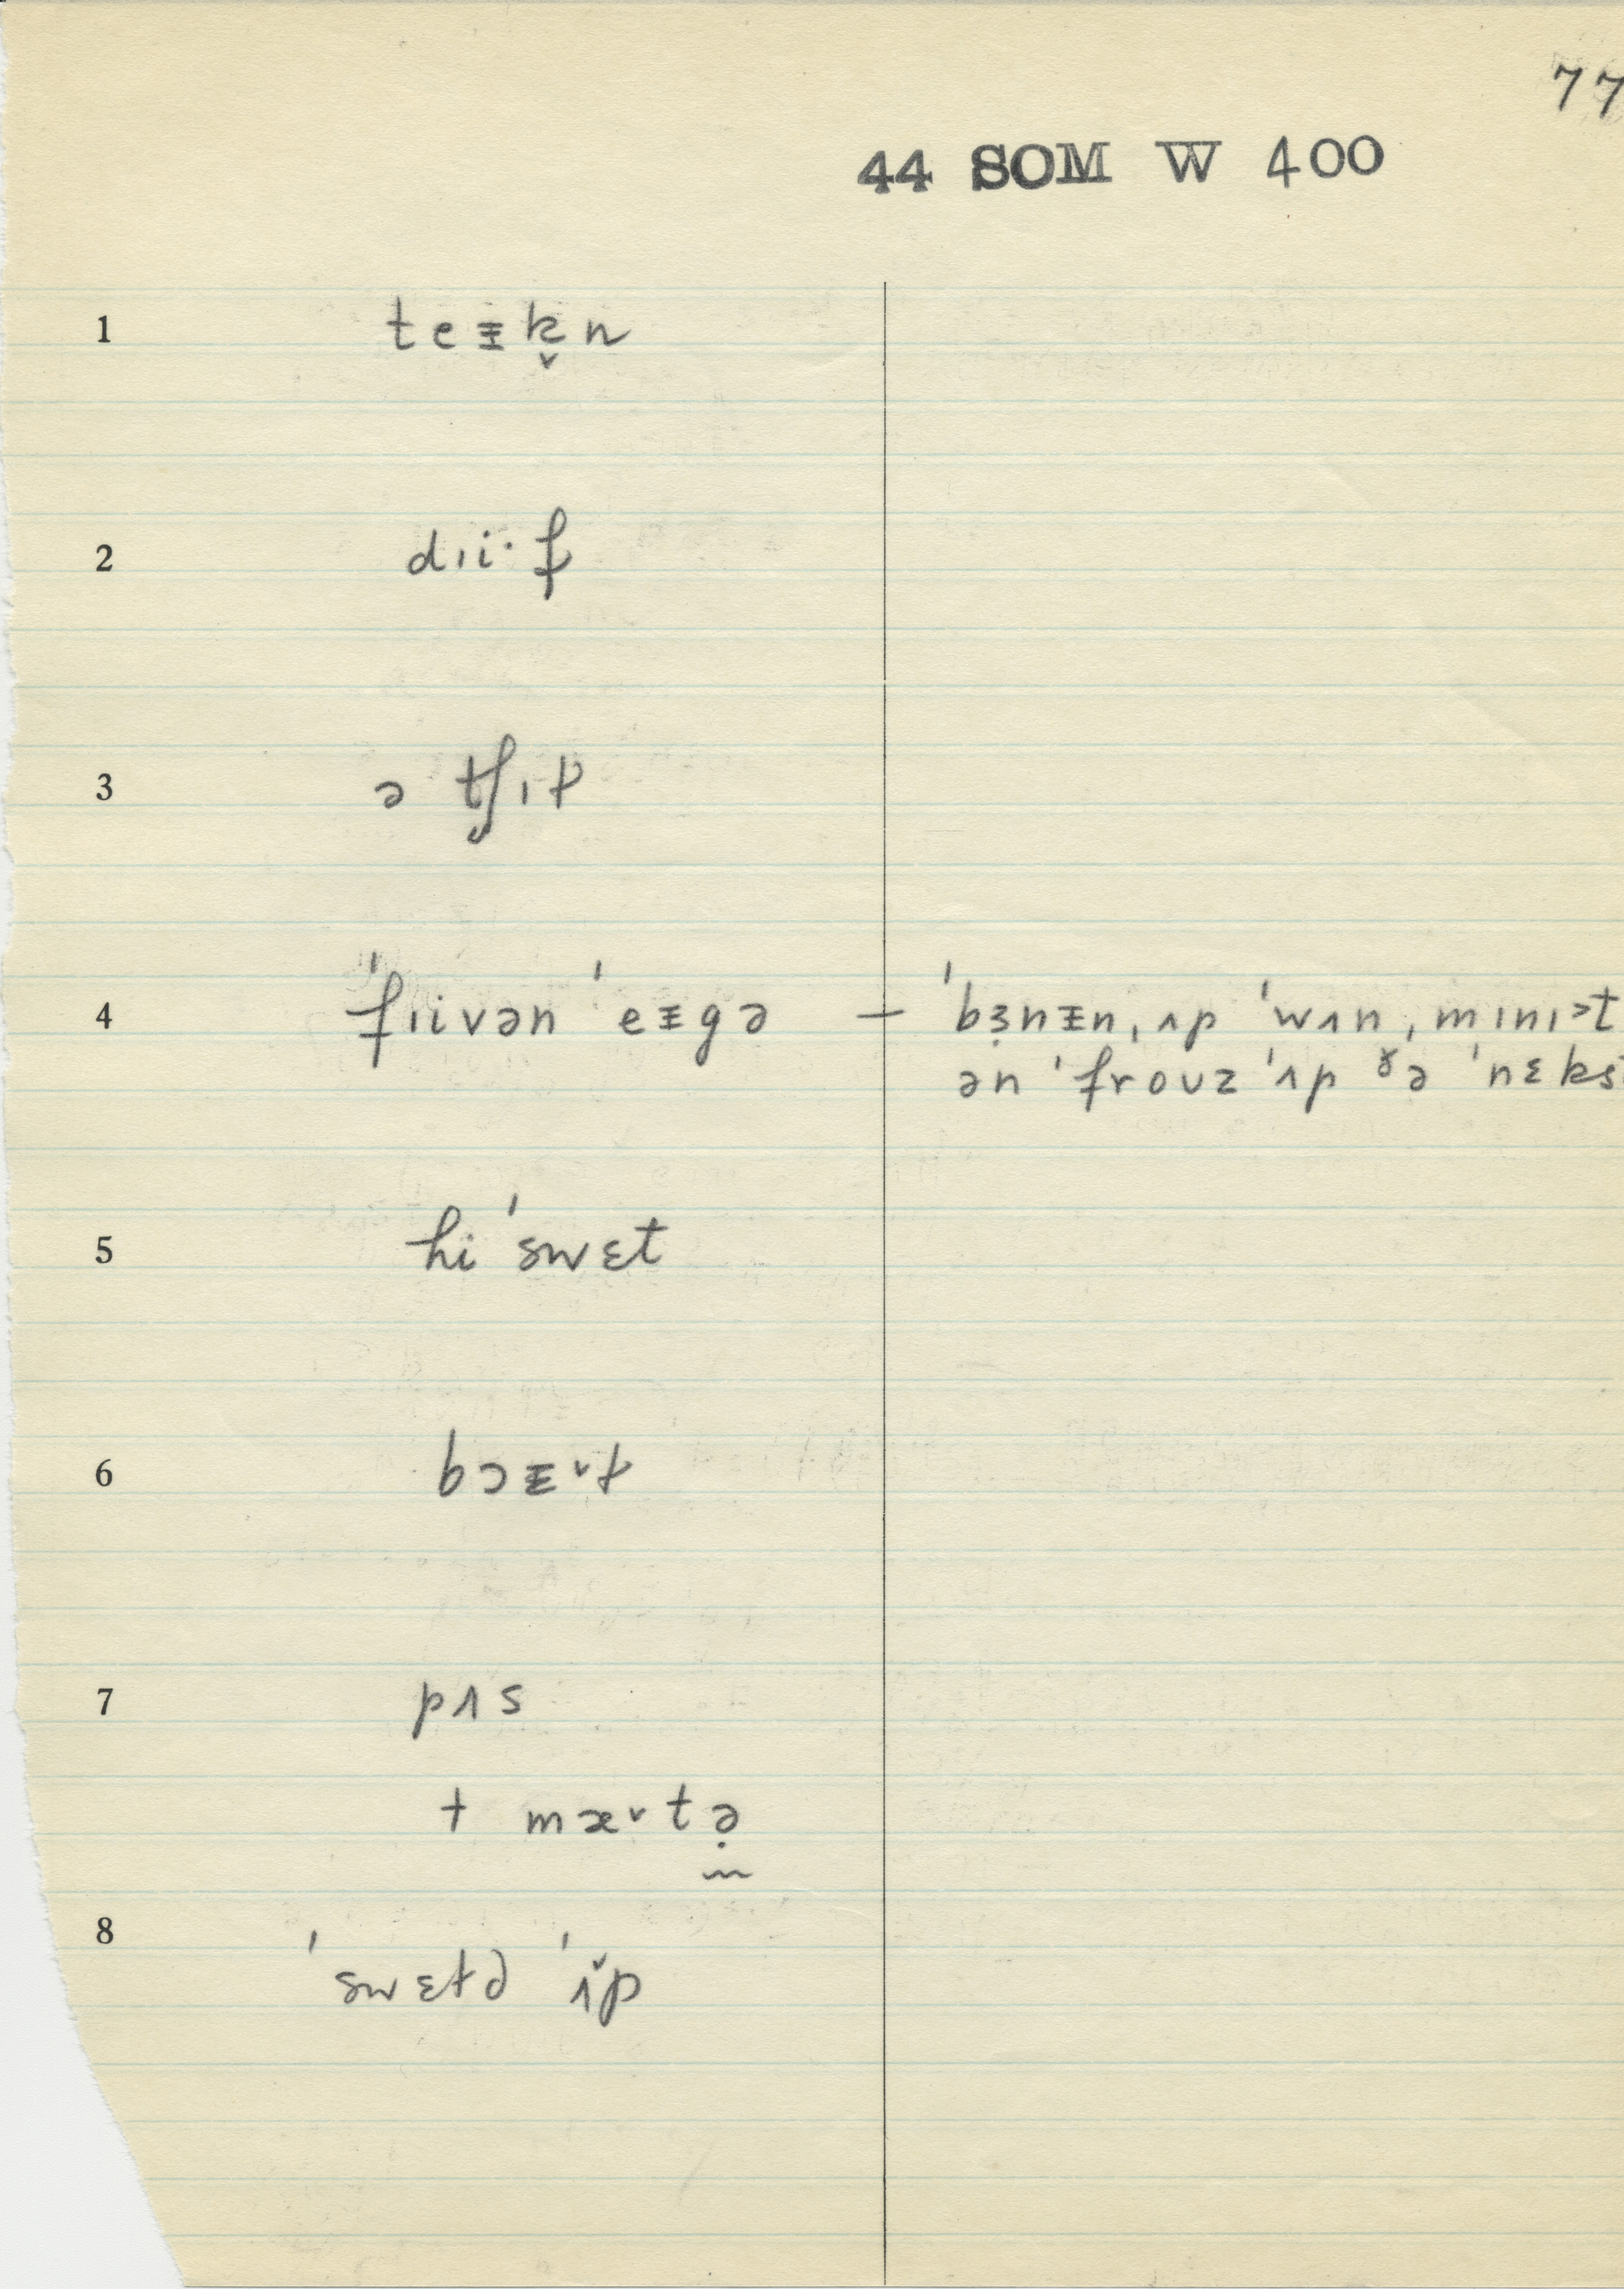 77
44 SOM W 400
1 teᵻk̬n
2 dɪi·f
3 ə tʃɪt
4 ˈfɪivən ˈeᵻgə – ˈbɜ̣nᵻn ˌʌp ˈwʌn ˌmɪnɪət
ən ˈfrouz ˈʌp ðə ˈnɛks
5 hi ˈswɛt
6 bɔᵻ˅t
7 pʌs
+ mæ˅tə̣
8
ˈswɛtə ˈʌ̌p